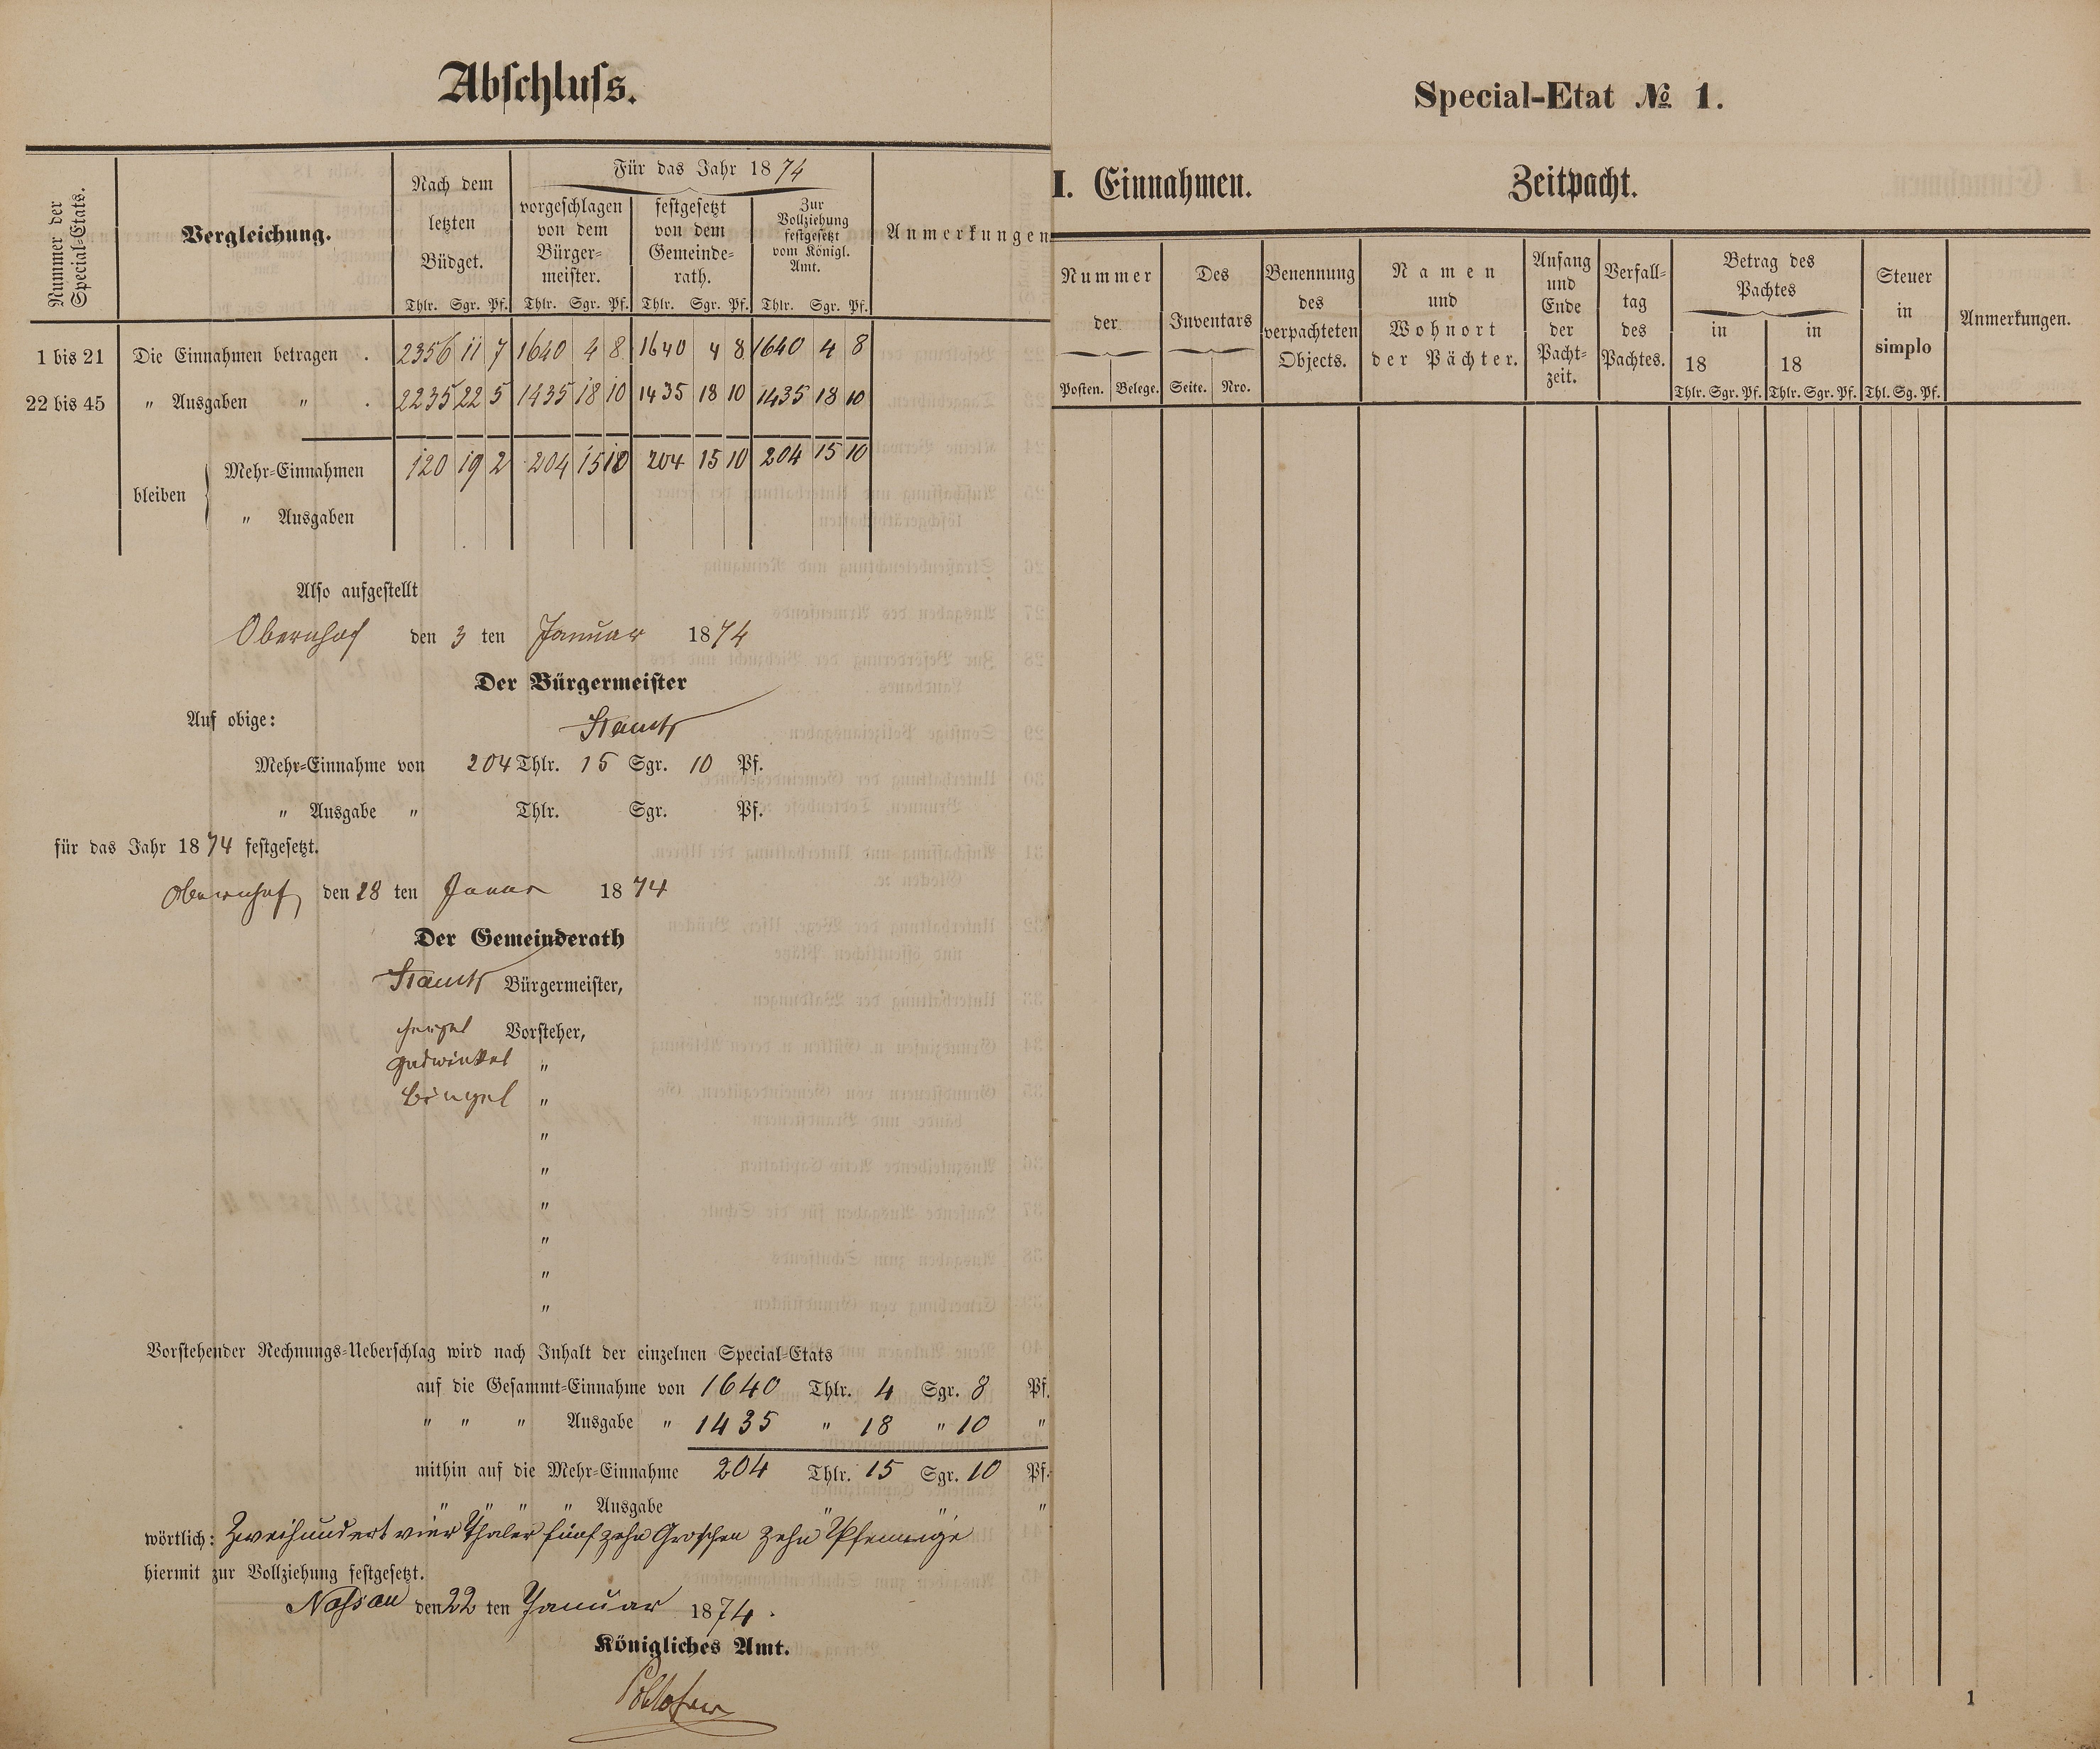 Abschluss.
Nummer der Special-Etats.
Vergleichung.
Nach dem letzten Büdget.
Für das Jahr 1874
vorgeschlagen von dem Bürger-meister.
festgesetzt von dem Gemeinde-rath.
Zur Vollziehung festgesetzt vom Königl. Amt.
Anmerkungen
Thlr. Sgr. Pf. Thlr. Sgr. Pf. Thlr. Sgr. Pf. Thlr. Sgr. Pf.
1 bis 21 Die Einnahmen betragen . 2356 11 7 1640 4 8 1640 4 8 1640 4 8
22 bis 45 " Ausgaben " . 2235 22 5 1435 18 10 1435 18 10 1435 18 10
bleiben Mehr-Einnahmen 120 19 2 204 15 10 204 15 10 204 15 10
" Ausgaben
Also aufgestellt
Obernhof den 3 ten Januar 1874
Der Bürgermeister
Auf obige:
Mehr-Einnahme von 204 Thlr. 15 Sgr. 10 Pf.
" Ausgabe " Thlr. Sgr. Pf.
für das Jahr 1874 festgesetzt.
Obernhof den 18 ten Januar 1874
Der Gemeinderath
Bürgermeister,
Vorsteher,
"
Bingel "
"
"
"
"
"
"
Vorstehender Rechnungs-Ueberschlag wird nach Inhalt der einzelnen Special-Etats
auf die Gesammt-Einnahme von 1640 Thlr. 4 Sgr. 8 Pf.
" " " Ausgabe " 1435 " 18 " 10 "
mithin auf die Mehr-Einnahme 204 Thlr. 15 Sgr. 10 Pf.
" " " " Ausgabe " " "
wörtlich: Zweihundert vier Thaler fünfzehn Groschen zehn Pfennige
hiermit zur Vollziehung festgesetzt.
Nassau den 22 ten Januar 1874.
Königliches Amt.
Special-Etat № 1.
I. Einnahmen. Zeitpacht.
Nummer der
Posten. Belege.
Des Inventars
Seite. Nro.
Benennung des verpachteten Objects.
Namen und Wohnort der Pächter.
Anfang und Ende der Pacht-zeit.
Verfall-tag des Pachtes.
Betrag des Pachtes
in 18 in 18
Thlr. Sgr. Pf. Thlr. Sgr. Pf.
Steuer in simplo
Thl. Sg. Pf.
Anmerkungen.
1